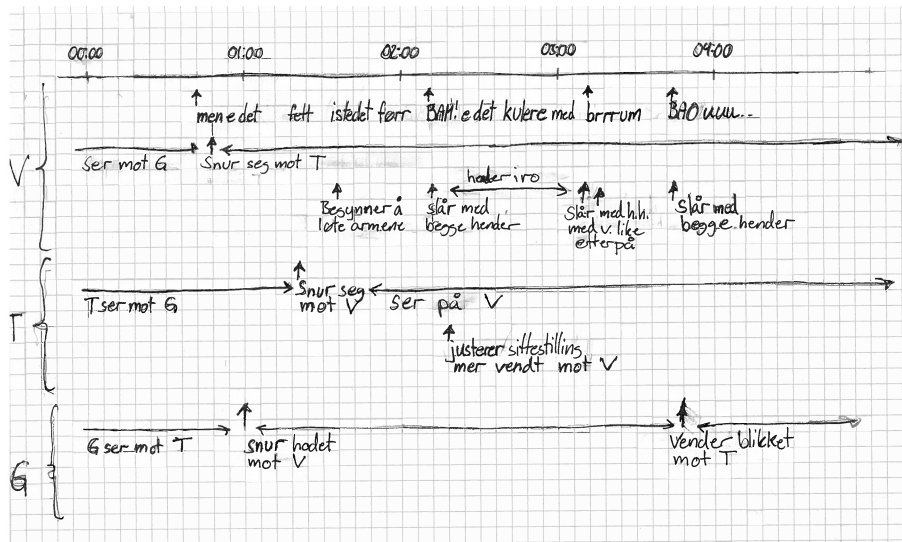 00:00 01:00 02:00 03:00 04:00
men e det fett istedet førr BAM! e det kulere med brrrum BAO uuu...
V
ser mot G Snur seg mot T
hender i ro
Begynner å løfte armene
slår med begge hender
Slår med h.h. med v. like etterpå
Slår med begge hender
T
T ser mot G
Snur seg mot V
ser på V
justerer sittestilling
mer vendt mot V
G
G ser mot T
snur hodet mot V
vender blikket mot T